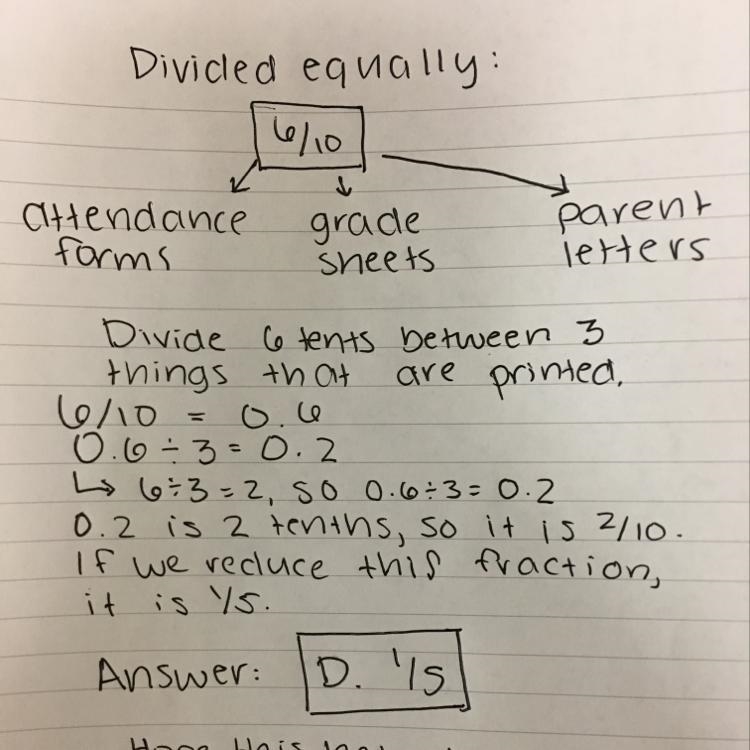 Divided equally:
6/10
attendance forms
grade sheets
parent letters
Divide 6 tents between 3
things that are printed.
6/10 = 0.6
0.6 ÷ 3 = 0.2
↳ 6÷3 = 2, so 0.6÷3 = 0.2
0.2 is 2 tenths, so it is 2/10.
If we reduce this fraction,
it is 1/5.
Answer: D. 1/5
Hope this